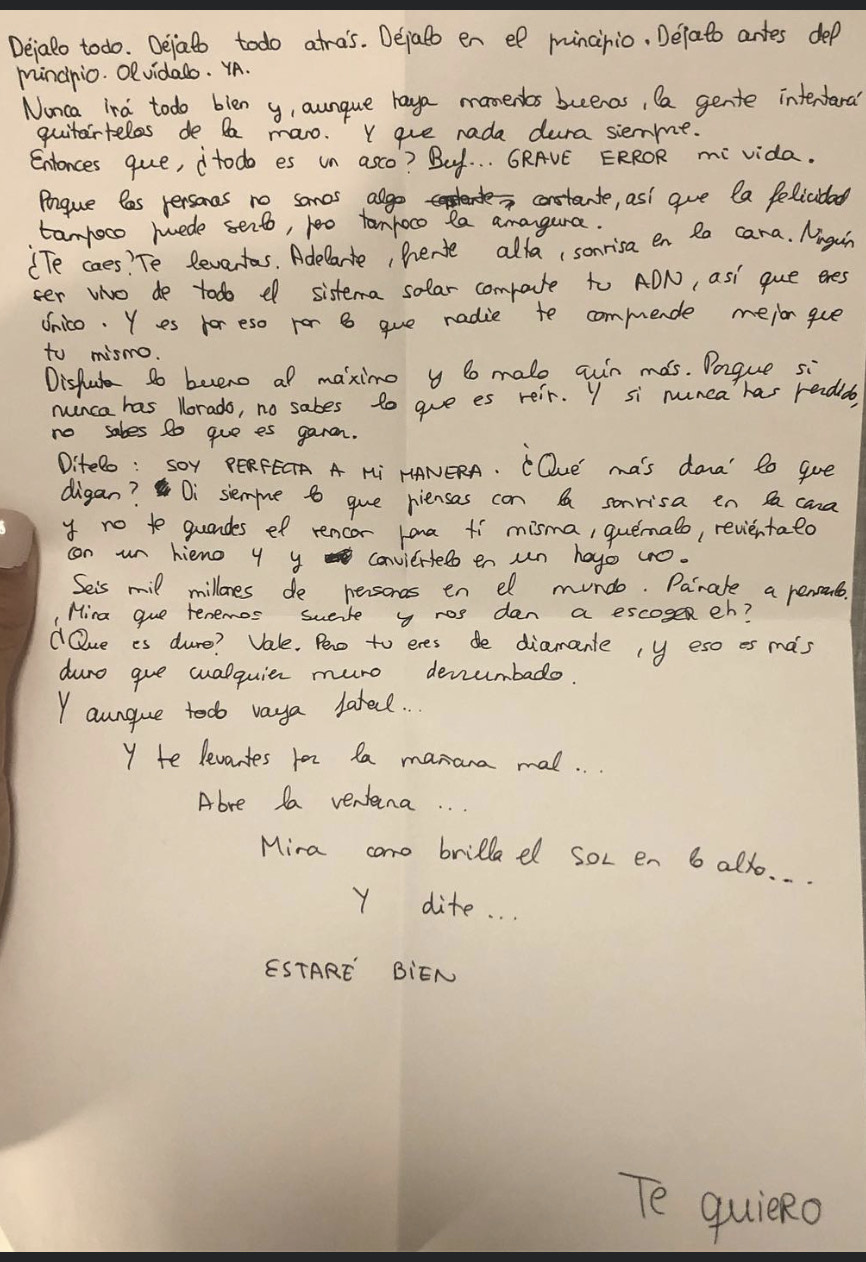 Déjalo todo. Déjalo todo atrás. Déjalo en el principio. Déjalo antes del
principio. Olvídalo. YA.
Nunca irá todo bien y, aunque haya momentos buenos, la gente intentará
quitártelos de la mano. Y que nada dura siempre.
Entonces que, ¿todo es un asco? Buf... GRAVE ERROR mi vida.
Porque las personas no somos algo constante, así que la felicidad
tampoco puede serlo, pero tampoco la amargura.
¿Te caes? Te levantas. Adelante, frente alta, sonrisa en la cara. Ningún
ser vivo de todo el sistema solar comparte tu ADN, así que eres
único. Y es por eso por lo que nadie te comprende mejor que
tu mismo.
Disfruta lo bueno al máximo y lo malo aún más. Porque si
nunca has llorado, no sabes lo que es reír. Y si nunca has perdido,
no sabes lo que es ganar.
Dítelo: SOY PERFECTA A Mi MANERA. ¿Qué más dará lo que
digan? Di siempre lo que piensas con la sonrisa en la cara
y no te guardes el rencor para tí misma, quémalo, reviéntalo
con un hierro y y conviértelo en un hoyo
Seis mil millones de personas en el mundo. Párate a pensarlo.
¡Mira que tenemos suerte y nos dan a escoger eh?
¿Que es duro? Vale. Pero tu eres de diamante, y eso es más
duro que cualquier muro derrumbado.
Y aunque todo vaya fatal...
Y te levantes por la mañana mal...
Abre la ventana ...
Mira como brilla el SOL en lo alto....
Y dite...
ESTARÉ BiEN
Te quiero